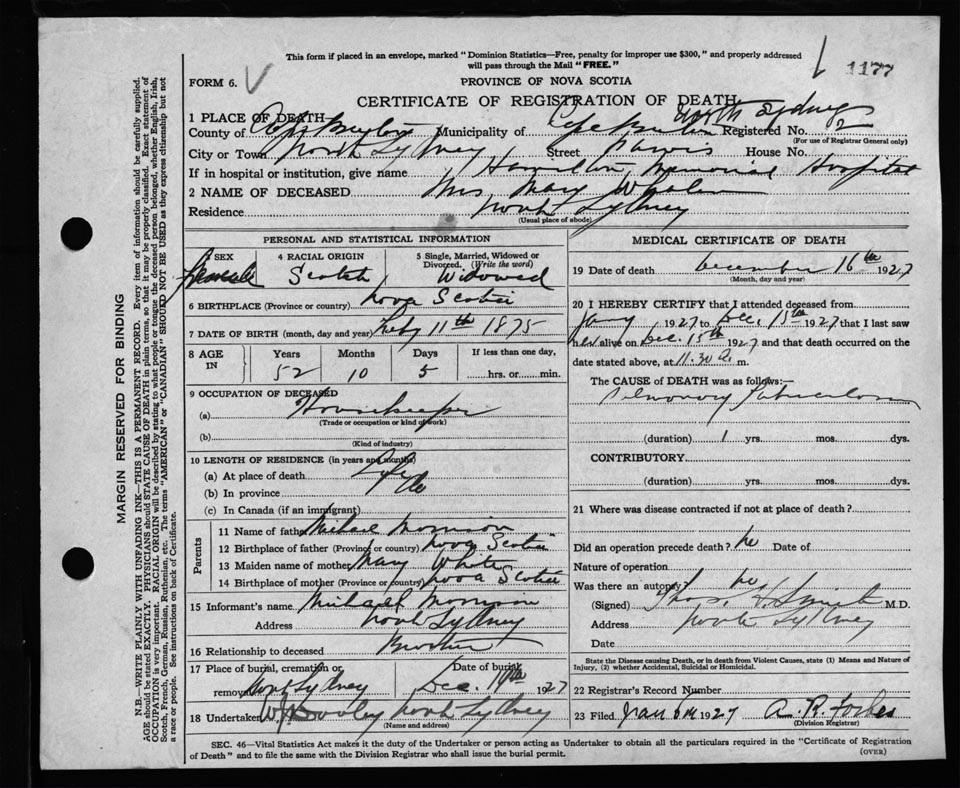 This form if placed in an envelope, marked "Dominion Statistics—Free, penalty for improper use $300," and properly addressed
will pass through the Mail "FREE."
1177
FORM 6.
PROVINCE OF NOVA SCOTIA
CERTIFICATE OF REGISTRATION OF DEATH
North Sydney
1 PLACE OF DEATH
County of Cape Breton Municipality of Cape Breton Registered No. 2
(For use of Registrar General only)
City or Town North Sydney Street House No.
If in hospital or institution, give name Hamilton Memorial Hospital
2 NAME OF DECEASED Mrs Mary
Residence North Sydney
(Usual place of abode)
PERSONAL AND STATISTICAL INFORMATION
SEX Female
4 RACIAL ORIGIN Scotch
5 Single, Married, Widowed or Divorced. (Write the word) Widowed
6 BIRTHPLACE (Province or country) Nova Scotia
7 DATE OF BIRTH (month, day and year) Feby 11th 1875
8 AGE IN Years Months Days If less than one day,
52 10 5 hrs. or min.
9 OCCUPATION OF DECEASED
(a) Housekeeper
(Trade or occupation or kind of work)
(b)
(Kind of industry)
10 LENGTH OF RESIDENCE (in years and months)
(a) At place of death Life
(b) In province do
(c) In Canada (if an immigrant)
Parents
11 Name of father Michael Morrison
12 Birthplace of father (Province or country) Nova Scotia
13 Maiden name of mother Mary White
14 Birthplace of mother (Province or country) Nova Scotia
15 Informant's name Michael Morrison
Address North Sydney
16 Relationship to deceased Brother
17 Place of burial, cremation or removal North Sydney
Date of burial Dec. 19th 1927
18 Undertaker W. J. Dooley North Sydney
(Name and address)
MEDICAL CERTIFICATE OF DEATH
19 Date of death December 16th 1927
(Month, day and year)
20 I HEREBY CERTIFY that I attended deceased from
Jany 1927 to Dec. 15th 1927 that I last saw
her alive on Dec. 15th 1927 and that death occurred on the
date stated above, at 11.30 a. m.
The CAUSE of DEATH was as follows:—
Pulmonary Tuberculosis
(duration) 1 yrs. mos. dys.
CONTRIBUTORY
(duration) yrs. mos. dys.
21 Where was disease contracted if not at place of death?
Did an operation precede death? no Date of
Nature of operation
Was there an autopsy? no
(Signed) Thos. Smith M.D.
Address North Sydney
Date
State the Disease causing Death, or in death from Violent Causes, state (1) Means and Nature of
Injury, (2) whether Accidental, Suicidal or Homicidal.
22 Registrar's Record Number
23 Filed Jan 6th 1927 A. R. Forbes
(Division Registrar)
SEC. 46—Vital Statistics Act makes it the duty of the Undertaker or person acting as Undertaker to obtain all the particulars required in the "Certificate of Registration
of Death" and to file the same with the Division Registrar who shall issue the burial permit.
(OVER)
MARGIN RESERVED FOR BINDING
N.B.—WRITE PLAINLY WITH UNFADING INK—THIS IS A PERMANENT RECORD. Every item of information should be carefully supplied.
AGE should be stated EXACTLY. PHYSICIANS should STATE CAUSE OF DEATH in plain terms, so that it may be properly classified. Exact statement of
OCCUPATION is very important. RACIAL ORIGIN will be described by stating to what people or tongue the deceased person belonged, whether English, Irish,
Scotch, French, German, Russian, Ruthenian, etc. The terms "AMERICAN" or "CANADIAN" SHOULD NOT BE USED as they express citizenship but not
a race or people. See instructions on back of Certificate.